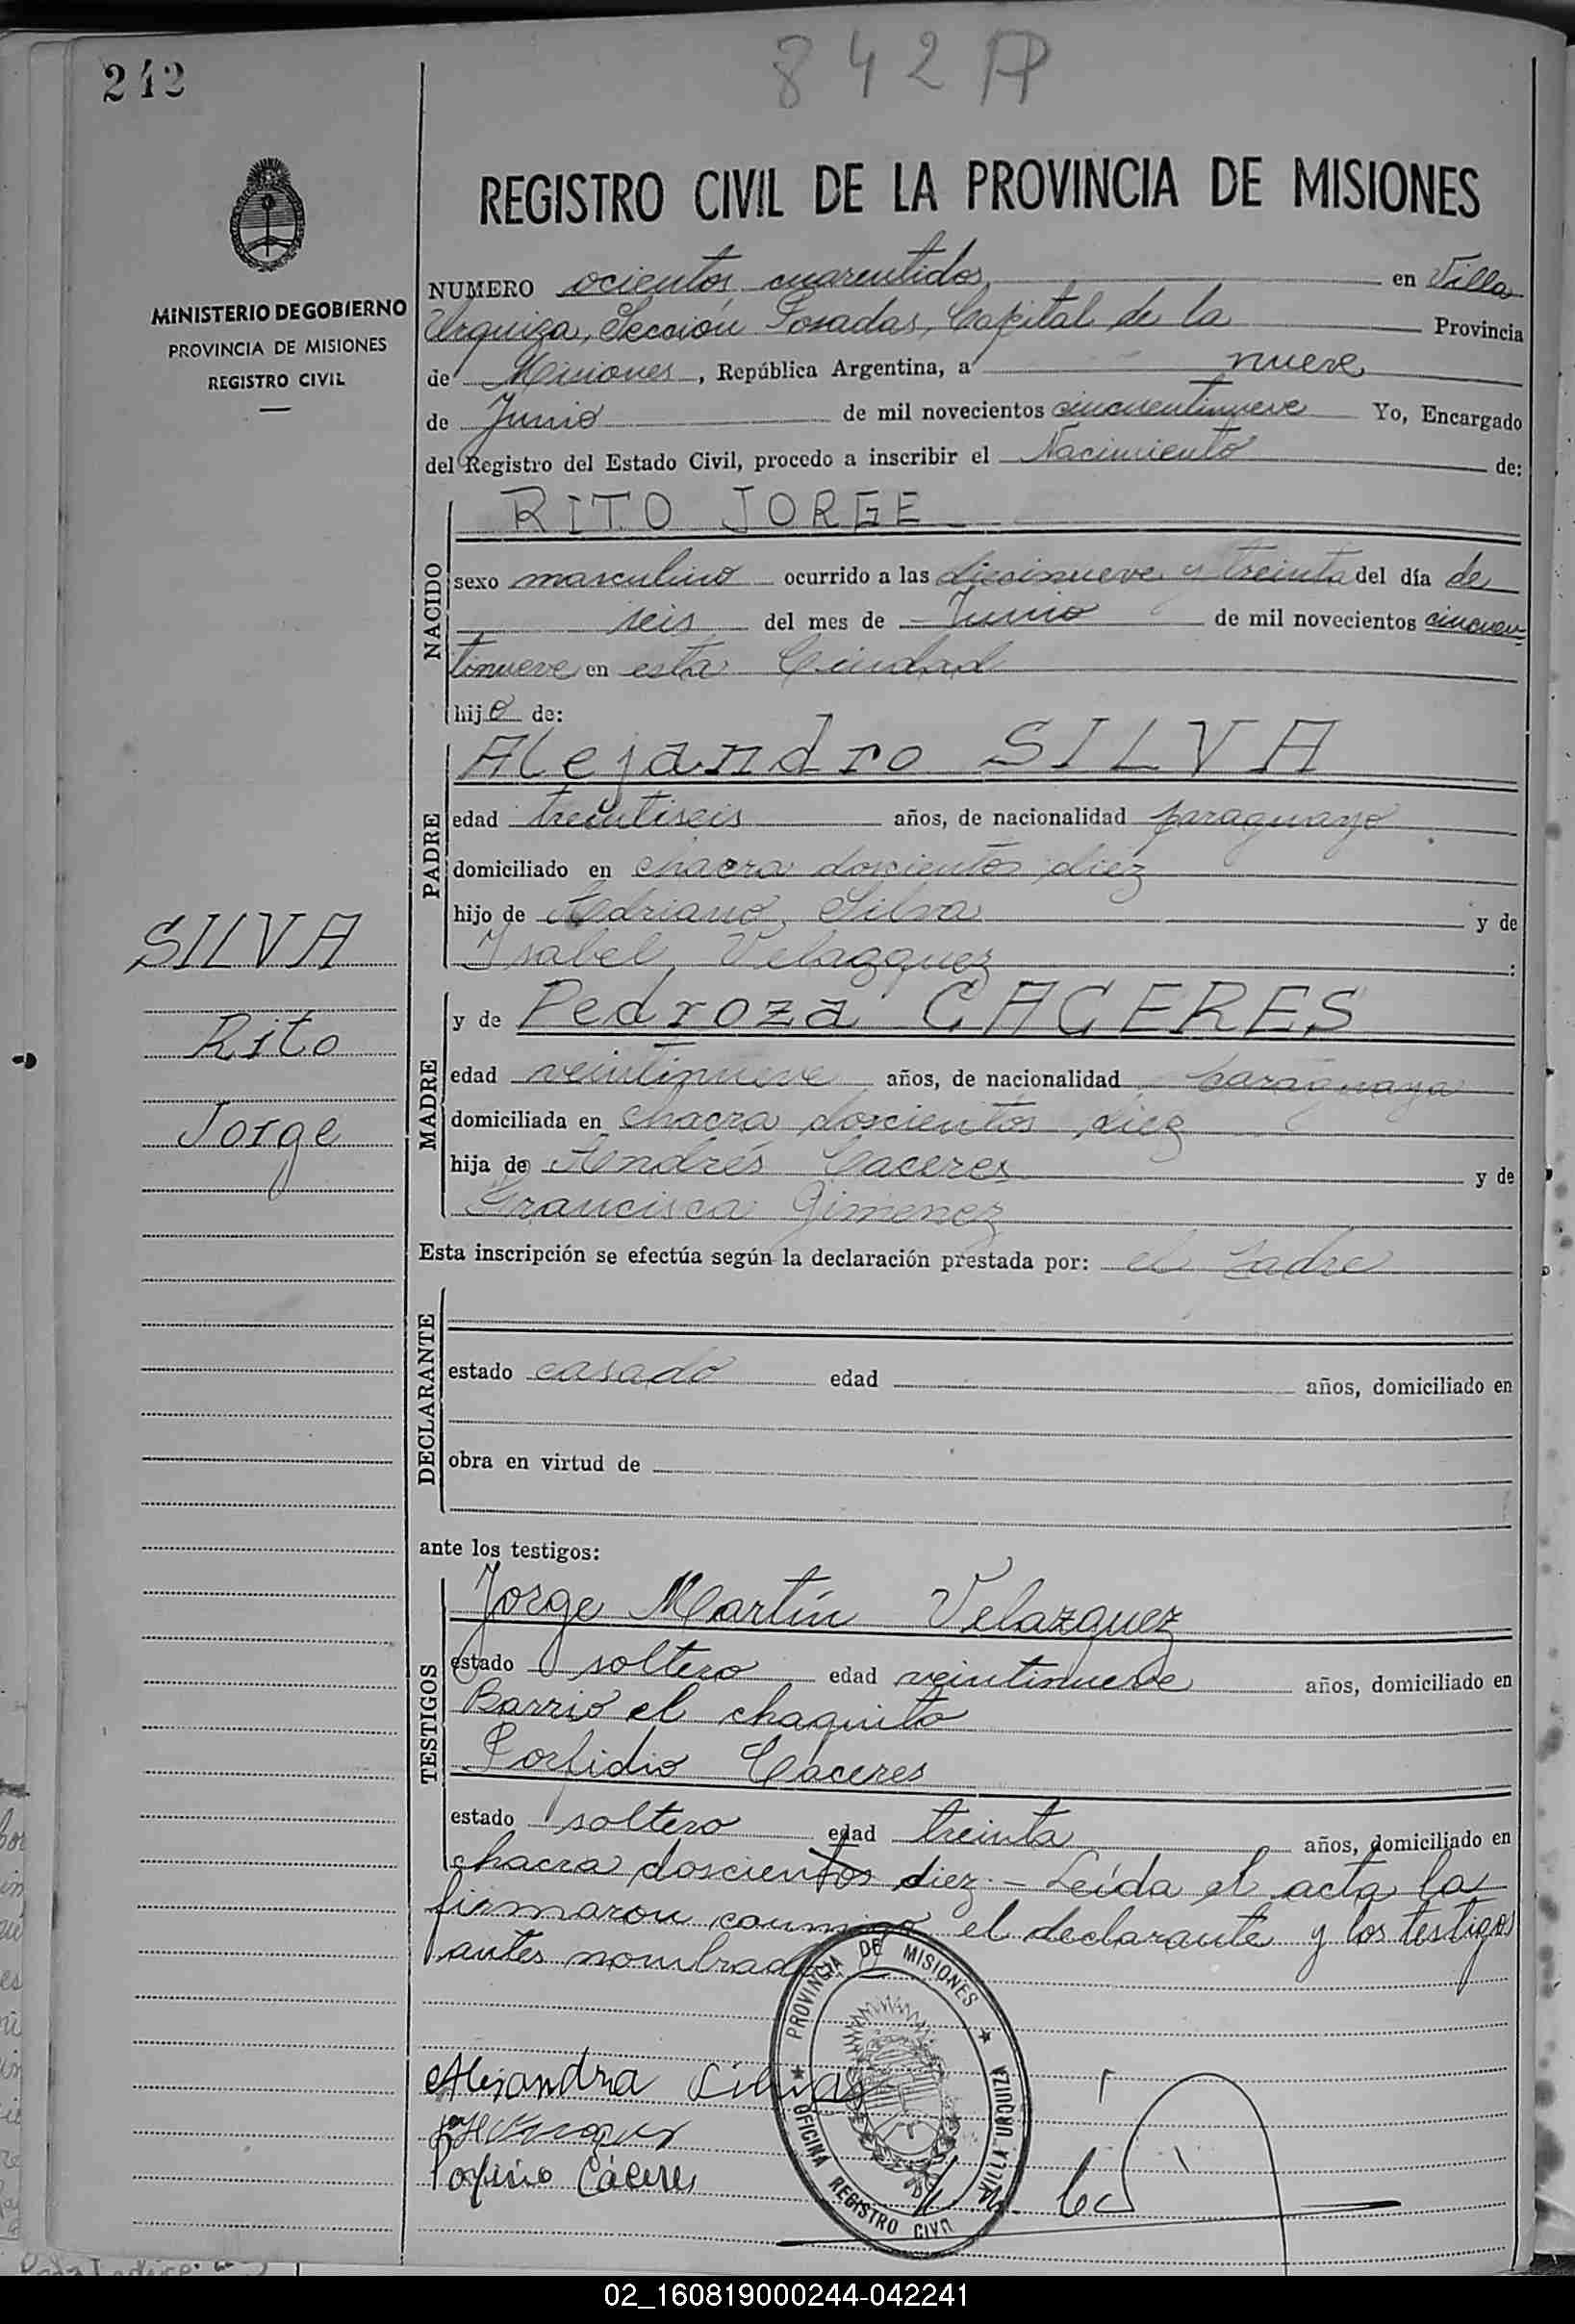 242
842 A
REGISTRO CIVIL DE LA PROVINCIA DE MISIONES
MINISTERIO DE GOBIERNO
PROVINCIA DE MISIONES
REGISTRO CIVIL
NUMERO ocientos cuarentidos en Villa
Urquiza, Sección Posadas, Capital de la Provincia
de Misiones, República Argentina, a nueve
de Junio de mil novecientos cincuentinueve Yo, Encargado
del Registro del Estado Civil, procedo a inscribir el Nacimiento de:
NACIDO
RITO JORGE
sexo masculino ocurrido a las diecinueve y treinta del día de
seis del mes de Junio de mil novecientos cincuen-
tinueve en esta Ciudad
hijo de:
PADRE
Alejandro SILVA
edad treintiseis años, de nacionalidad paraguayo
domiciliado en chacra doscientos diez
hijo de Adriano Silva y de
Isabel Velazquez :
SILVA
Rito
Jorge
MADRE
y de Pedroza CACERES
edad veintinueve años, de nacionalidad paraguaya
domiciliada en chacra doscientos diez
hija de Andrés Caceres y de
Francisca Gimenez
Esta inscripción se efectúa según la declaración prestada por: el padre
DECLARANTE
estado casado edad años, domiciliado en
obra en virtud de
ante los testigos:
TESTIGOS
Jorge Martín Velazquez
estado soltero edad veintinueve años, domiciliado en
Barrio el chaquito
Porfidio Caceres
estado soltero edad treinta años, domiciliado en
chacra doscientos diez.- Leída el acta la
firmaron conmigo el declarante y los testigos
antes nombrados
PROVINCIA DE MISIONES
OFICINA REGISTRO CIVIL
VILLA URQUIZA
Alejandra Silva
Porfirio Cáceres
02_160819000244-042241